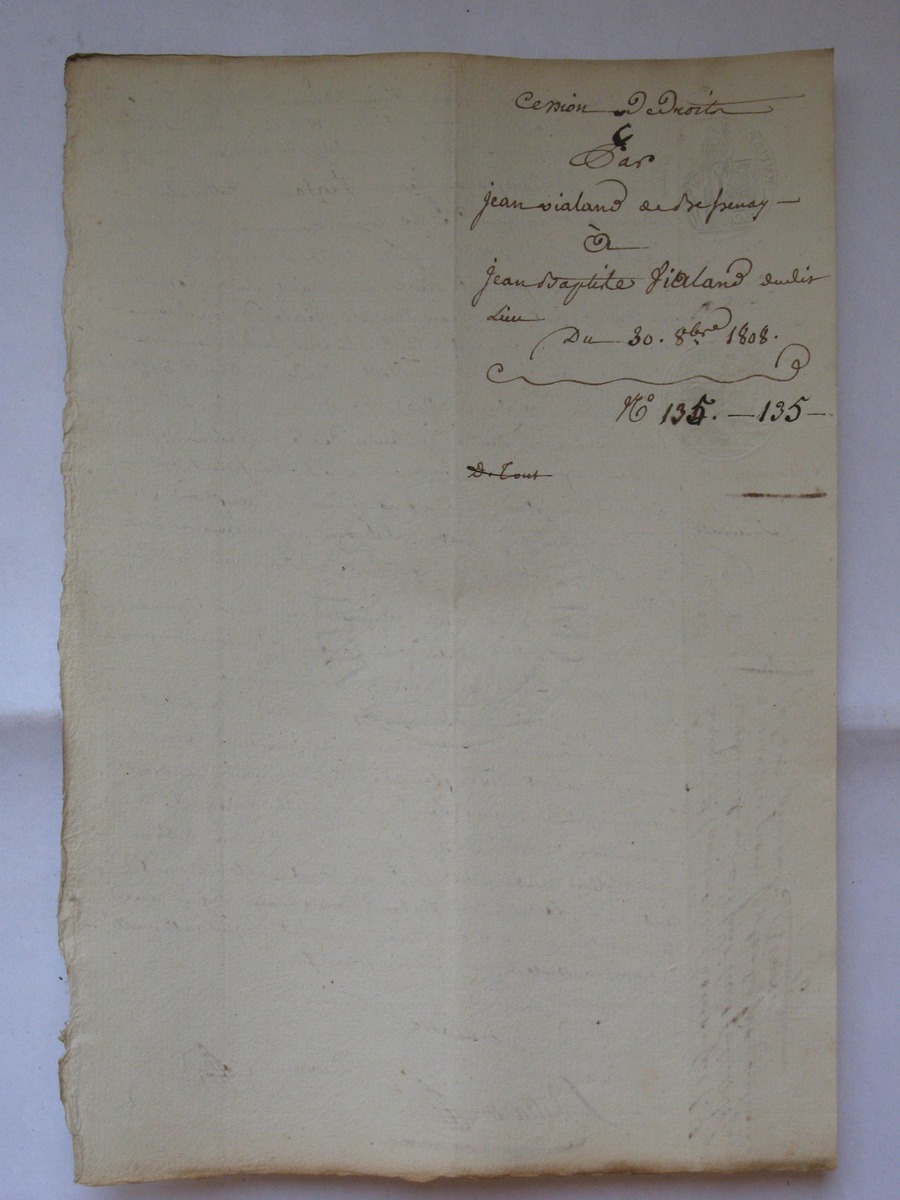 Cession De Droits
Par
jean vialand de Bressenay
à
jean Baptiste Vialand dudit
Lieu
Du 30. 8bre 1808.
N° 135. — 135 —
D. Tout